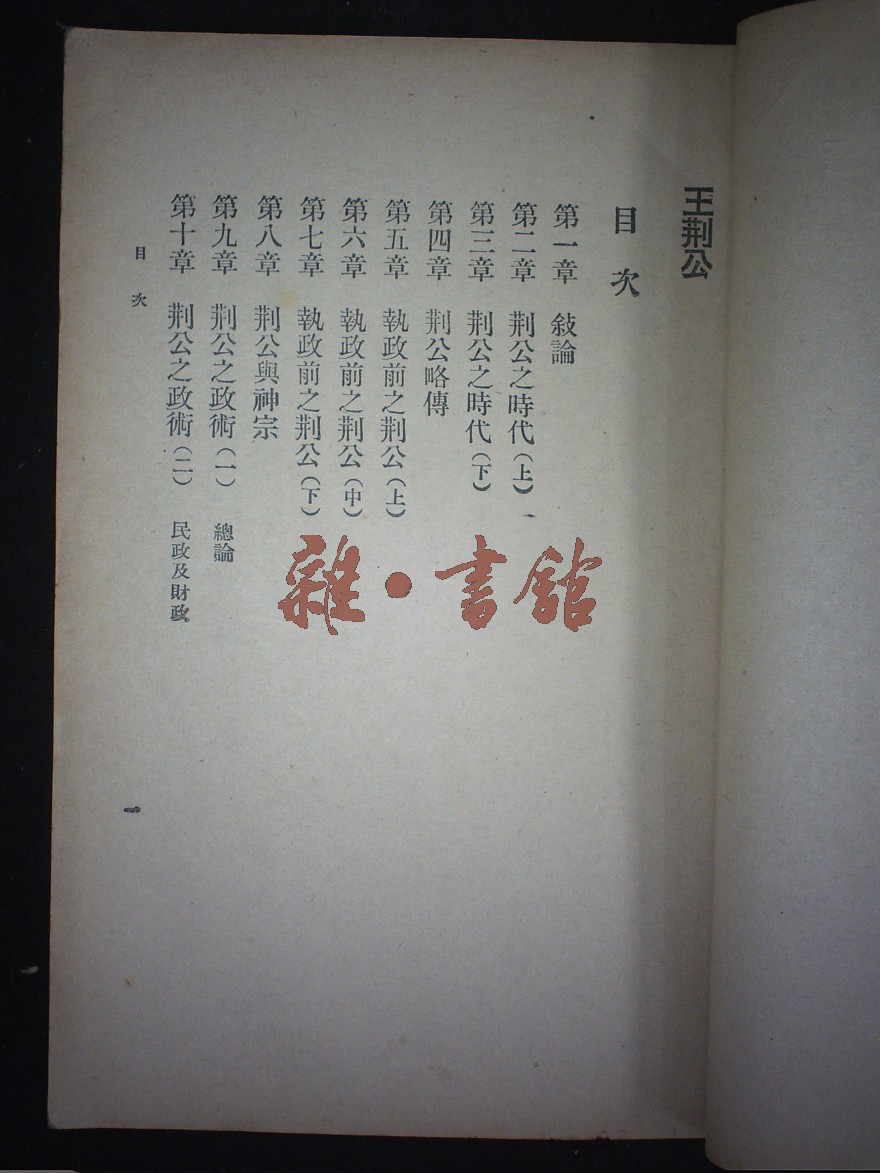 王荆公
目次
第一章 敍論
第二章 荆公之時代(上)
第三章 荆公之時代(下)
第四章 荆公略傳
第五章 執政前之荆公(上)
第六章 執政前之荆公(中)
第七章 執政前之荆公(下)
第八章 荆公與神宗
第九章 荆公之政術(一) 總論
第十章 荆公之政術(二) 民政及財政
目次
一
雜·書館